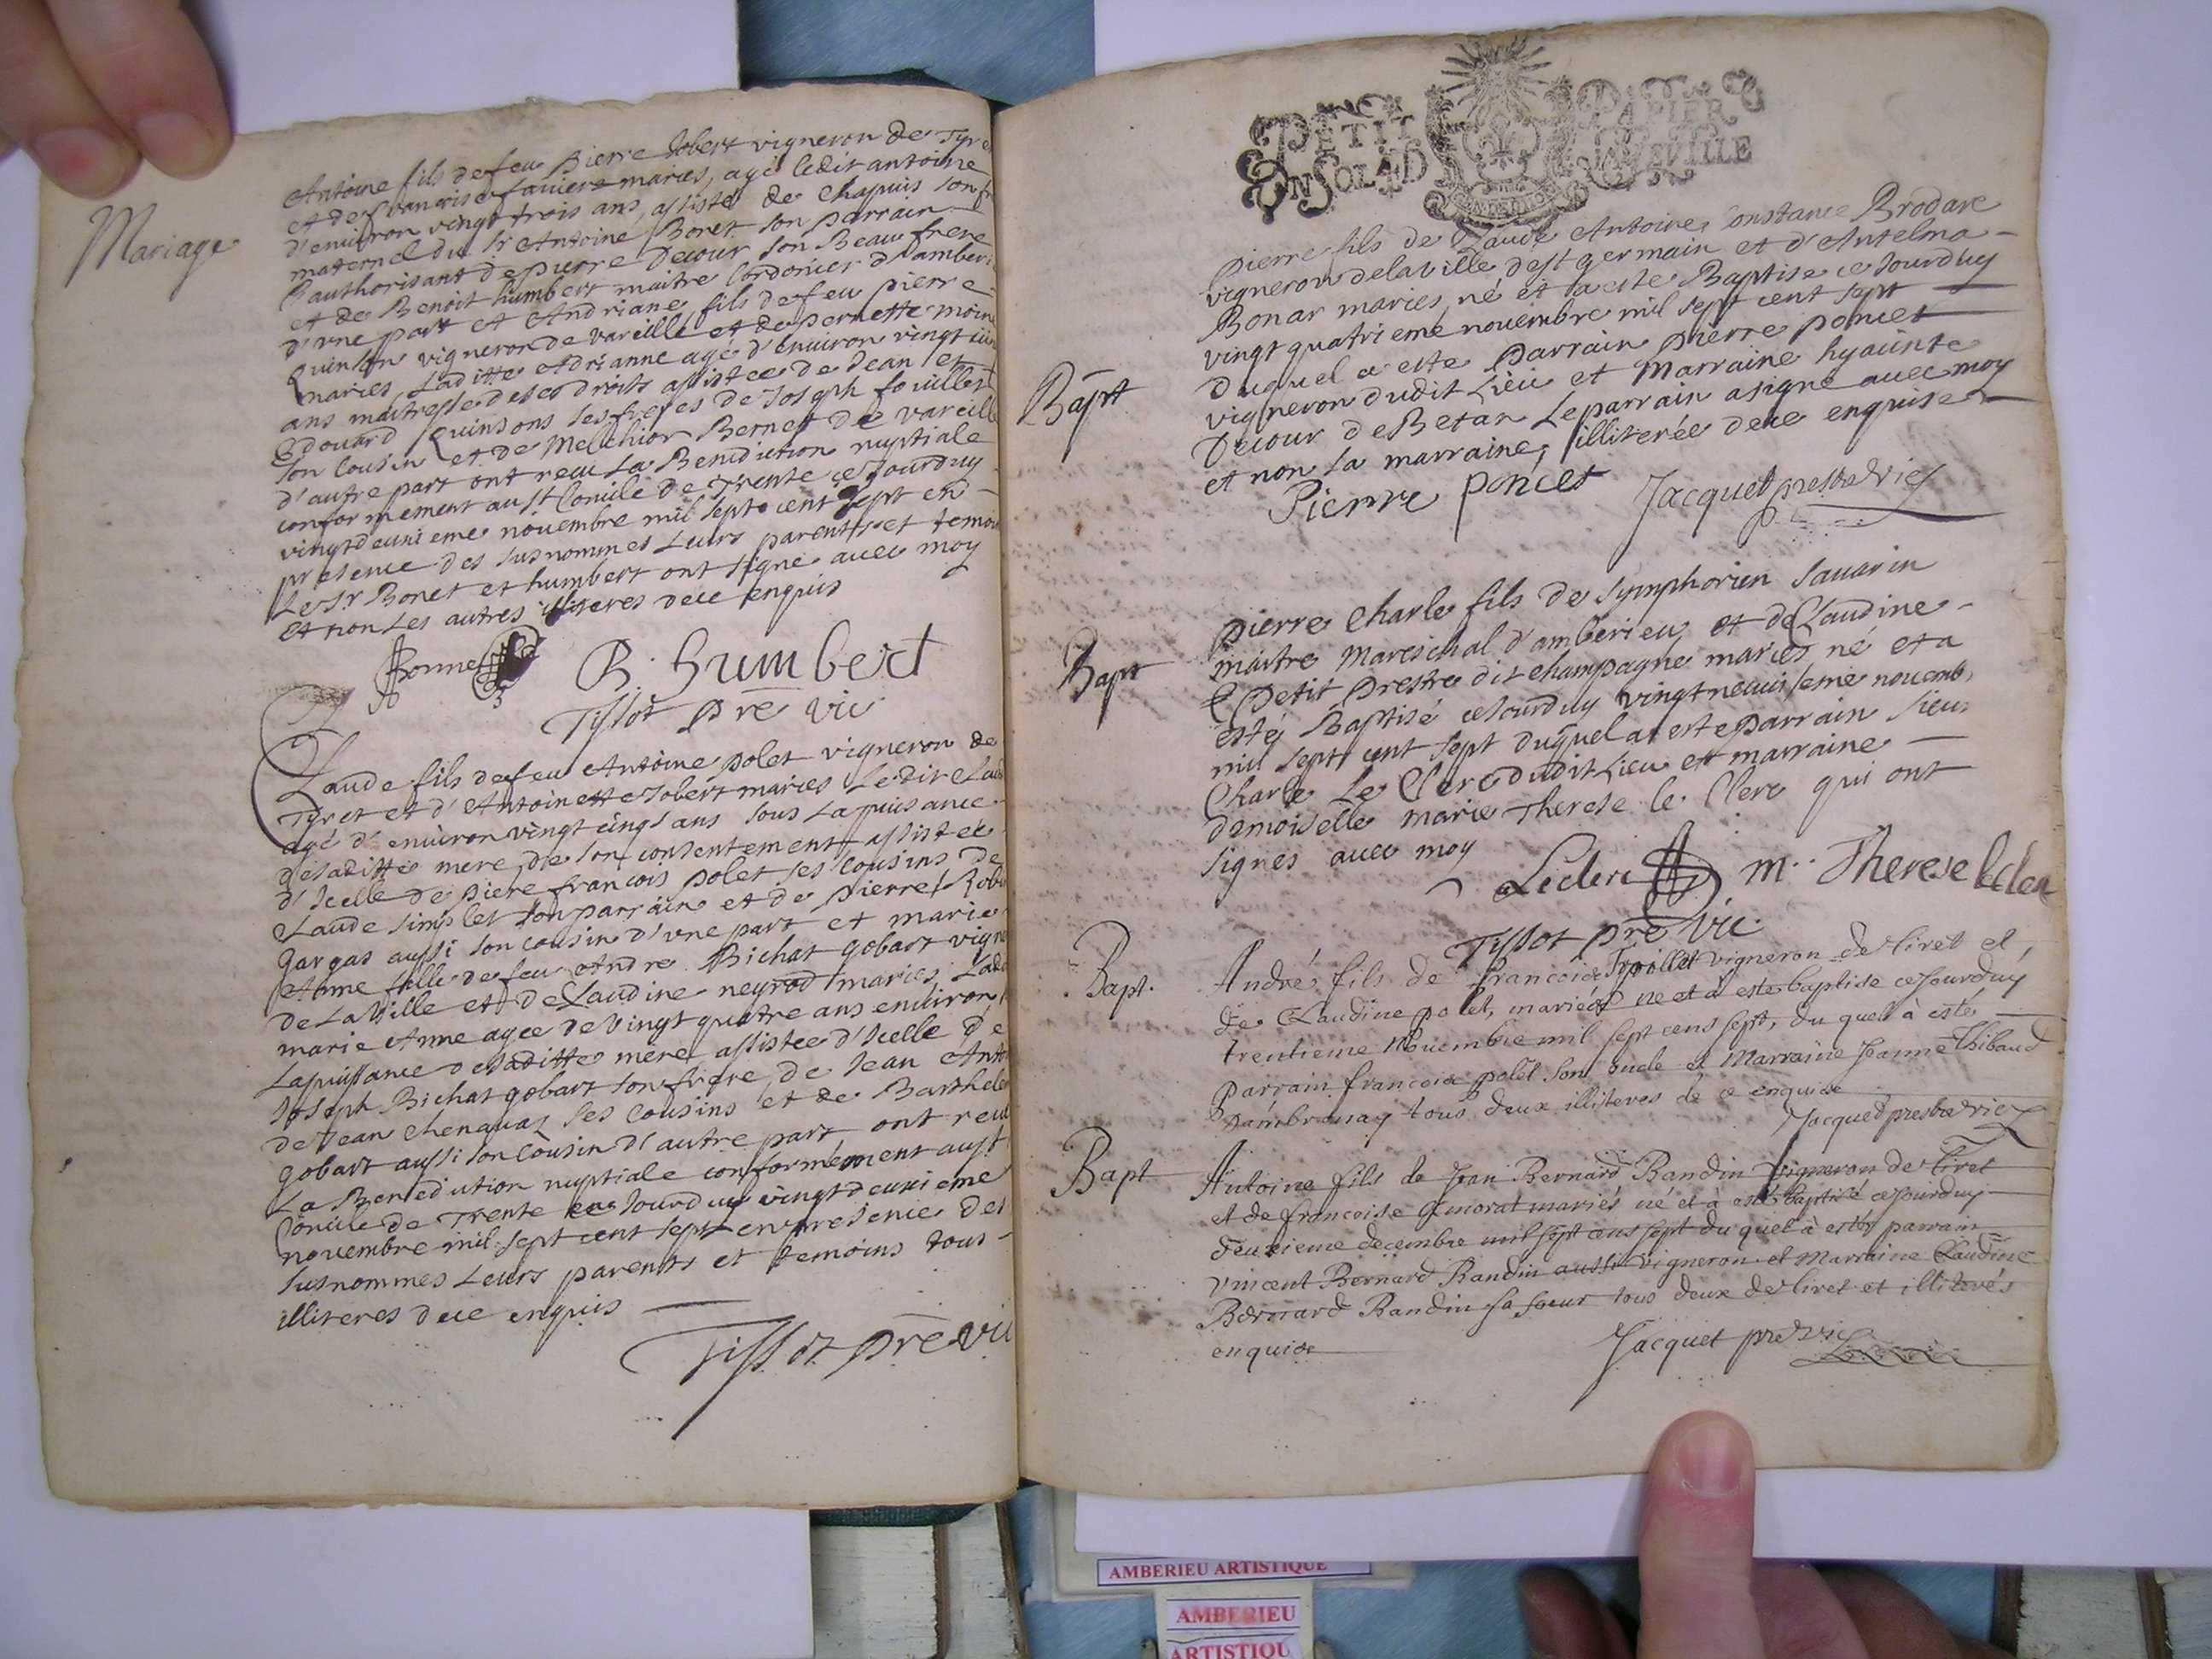 Mariage
Antoine fils de feu Pierre Jobert vigneron de Tyre
et de francoise fauiere maries, agé ledit antoine
d'enuiron vingt trois ans, assisté de Chapuis son fr
maternel du Sr Antoine Bonet son parrain
L'authorisant de pierre Decour son Beau frere
et de Benoit humbert maitre Cordonier d'amber
d'vne part et Andriane fils de feu pierre
quinson vigneron de vareille et de pernette moine
maries Laditte Adrianne agé d'enuiron vingt
ans maitresse de ses droits assistee de Jean et
Edouard quinsons ses freres de Joseph fouillet
son Cousin et de Melchior Bernet de vareille
d'autre part ont recu La Benediction nuptiale
conformement au St Concile de Trente ce Jourduy
vingtdeuxieme nouembre mil sept cent sept en
presence des susnommes Leurs parents et temo
Le Sr Bonet et humbert ont signé auec moy
et non Les autres illiteres dece enquis
Bonnet B. humbert
Tissot pre vic
Claude fils de feu Antoine polet vigneron de
Tyret et d'Antoinette Jobert maries Ledit Clau
agé d'enuiron vingt cinqs ans sous La puissance
de saditte mere de son consentement assistée
d'Icelle de piere francois polet ses Cousins de
Claude simplet son parrain et de pierre Robi
gargas aussi son cousin d'vne part et marie
Anne fille de feu Andre Bichat gobart vign
de La Ville et de Claudine neyrod maries Lad
marie Anne agee de vingt quatre ans enuiron
La puissance de saditte mère assistee d'Icelle de
Joseph Bichat gobart son frere, de Jean Anto
de Jean Chenauaz ses Cousins et de Barthele
gobart aussi son Cousin d'autre part ont recu
La Benediction nuptiale conformément au St
Concile de Trente ce Jourduy vingtdeuxieme
nouembre mil sept cent sept en presence des
susnommes Leurs parents et temoins tous
illiteres dece enquis
Tissot pre vic
PETIT PAPIER
UN SOL
Bapt
pierre fils de Claude Antoine Constance Brodare
vigneron dela ville de st germain et d'Antelma
Bonar maries, né et a este Baptise ce Jourduy
vingt quatrieme nouembre mil sept cent sept
Duquel a este parrain pierre poncet
vigneron dudit Lieu et Marraine hyacinte
Decour de Betan Le parrain a signé auec moy
et non La marraine, illiterée dece enquise
Pierre poncet Jacquet presbre vic
Bapt
pierre Charle fils de Symphorien Sauarin
maitre Mareschal d'amberieu et de Claudine
Petit prestre dit champagne maries né et a
esté Baptisé ce Jourduy vingtneuuiseme nouemb,
mil sept cent sept duquel a este parrain sieur
Charle Le Clerc dudit Lieu et marraine
demoiselle marie Therese le Clerc qui ont
signes auec moy
Leclerc m. Therese leclerc
Tissot pre vic
Bapt.
André fils de francois Tpollet vigneron de tiret et
de Claudine polet, mariés né et à este baptise ce Jourduy
trentieme Nouembre mil sept cens sept, du quel à esté
parrain francois polet son oncle et Marraine Jeanne Thibaud
Dambronay tous deux illiteres de ce enquise
Jacquet presbre vic
Bapt
Antoine fils de Jean Bernard Bandin vigneron de Tiret
et de francoise Gimorat mariés né et à esté baptisé ce Jourduy
deuxieme decembre mil sept cens sept du quel à esté parrain
vincent Bernard Bandin aussi vigneron et Marraine Claudine
Bernard Bandin sa soeur tous deux de tiret et illiterés
enquise
Jacquet pre vic
AMBERIEU ARTISTIQUE
AMBERIEU
ARTISTIQU